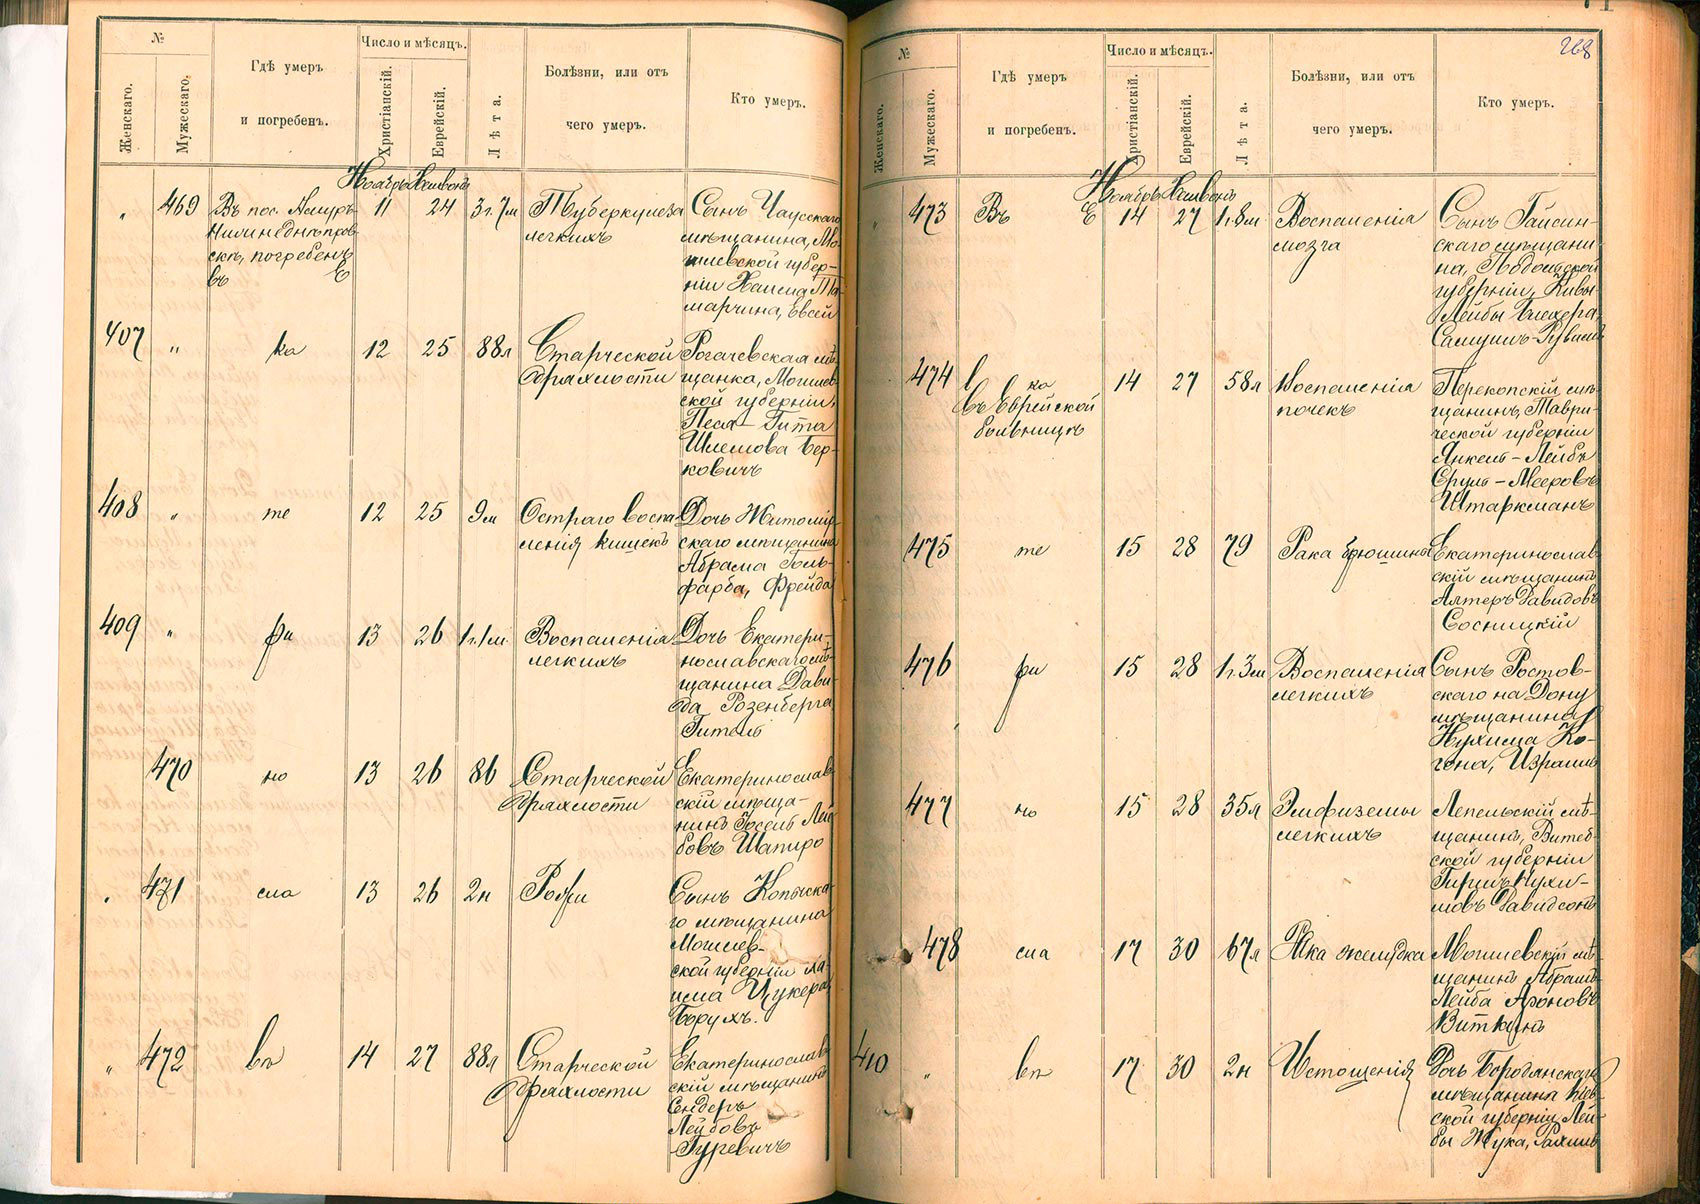 №
Женскаго.
Мужескаго.
Гдѣ умеръ
и погребенъ.
Число и мѣсяцъ.
Христіанскій.
Еврейскій.
Лѣта.
Болѣзни, или отъ
чего умеръ.
Кто умеръ.
Ноябрь Хешвонъ
„ 469
Въ пос. Амуръ
погребенъ
въ Е
11 24 3г.7м
Туберкулеза
легкихъ
Сынъ Чаусскаго
мѣщанина, Мо-
гилевской губер-
ніи Хаима Та-
марчина, Евсей
407 „ ка 12 25 88л
Старческой
дряхлости
Рогачевская мѣ-
щанка, Могилев-
ской губерніи,
Песя-Гита
Шлемова Бер-
ковичъ
408 „ те 12 25 9м
Остраго воспа-
ленія кишекъ
Дочь Житомир-
скаго мѣщанина
Абрама Голь-
фарба, Фрейда
409 „ ри 13 26 1г.1м
Воспаленія
легкихъ
Дочь Екатери-
нославскаго мѣ-
щанина Дави-
да Розенберга
Гитель
470 но 13 26 86
Старческой
дряхлости
Екатеринослав-
скій мѣща-
нинъ Іосель Лей-
бовъ Шапиро
„ 471 сла 13 26 2н
Рожи
Сынъ Копыска-
го мѣщанина
Могилев-
ской губерніи Ха-
има Цукера,
Борухъ.
„ 472 вѣ 14 27 88л
Старческой
дряхлости
Екатеринослав-
скій мѣщанинъ
Сендеръ
Лейбовъ
Гуревичъ
268
№
Женскаго.
Мужескаго.
Гдѣ умеръ
и погребенъ.
Число и мѣсяцъ.
Христіанскій.
Еврейскій.
Лѣта.
Болѣзни, или отъ
чего умеръ.
Кто умеръ.
Ноябрь Хешвонъ
„ 473 Въ Е 14 27 1г.8м
Воспаленія
мозга
Сынъ Гайсин-
скаго мѣщани-
на, Подольской
губерніи, Кивы-
Лейбы
Самуилъ-Рувимъ
474 ка
въ Еврейской
больницѣ
14 27 58л
Воспаленія
почекъ
Перекопскій мѣ-
щанинъ, Таври-
ческой губерніи
Янкель-Лейбъ
Сруль-Мееровъ
Штаркманъ
475 те 15 28 79
Рака брюшины
Екатеринослав-
скій мѣщанинъ
Алтеръ Давидовъ
Сосницкій
476 ри 15 28 1г.3м
Воспаленія
легкихъ
Сынъ Ростов-
скаго на Дону
мѣщанина
Нухима Ко-
гона, Израиль
477 но 15 28 35л
Эмфиземы
легкихъ
Лепельскій мѣ-
щанинъ, Витеб-
ской губерніи
Гиршъ Нухи-
мовъ Давидсонъ
478 сла 17 30 67л
Рака желудка
Могилевскій мѣ-
щанинъ Абрамъ-
Лейба Ароновъ
Виткинъ
410 „ вѣ 17 30 2н
Истощенія
Дочь Бородянскаго
мѣщанина Кіев-
ской губерніи Лей-
бы Жука, Рахиль